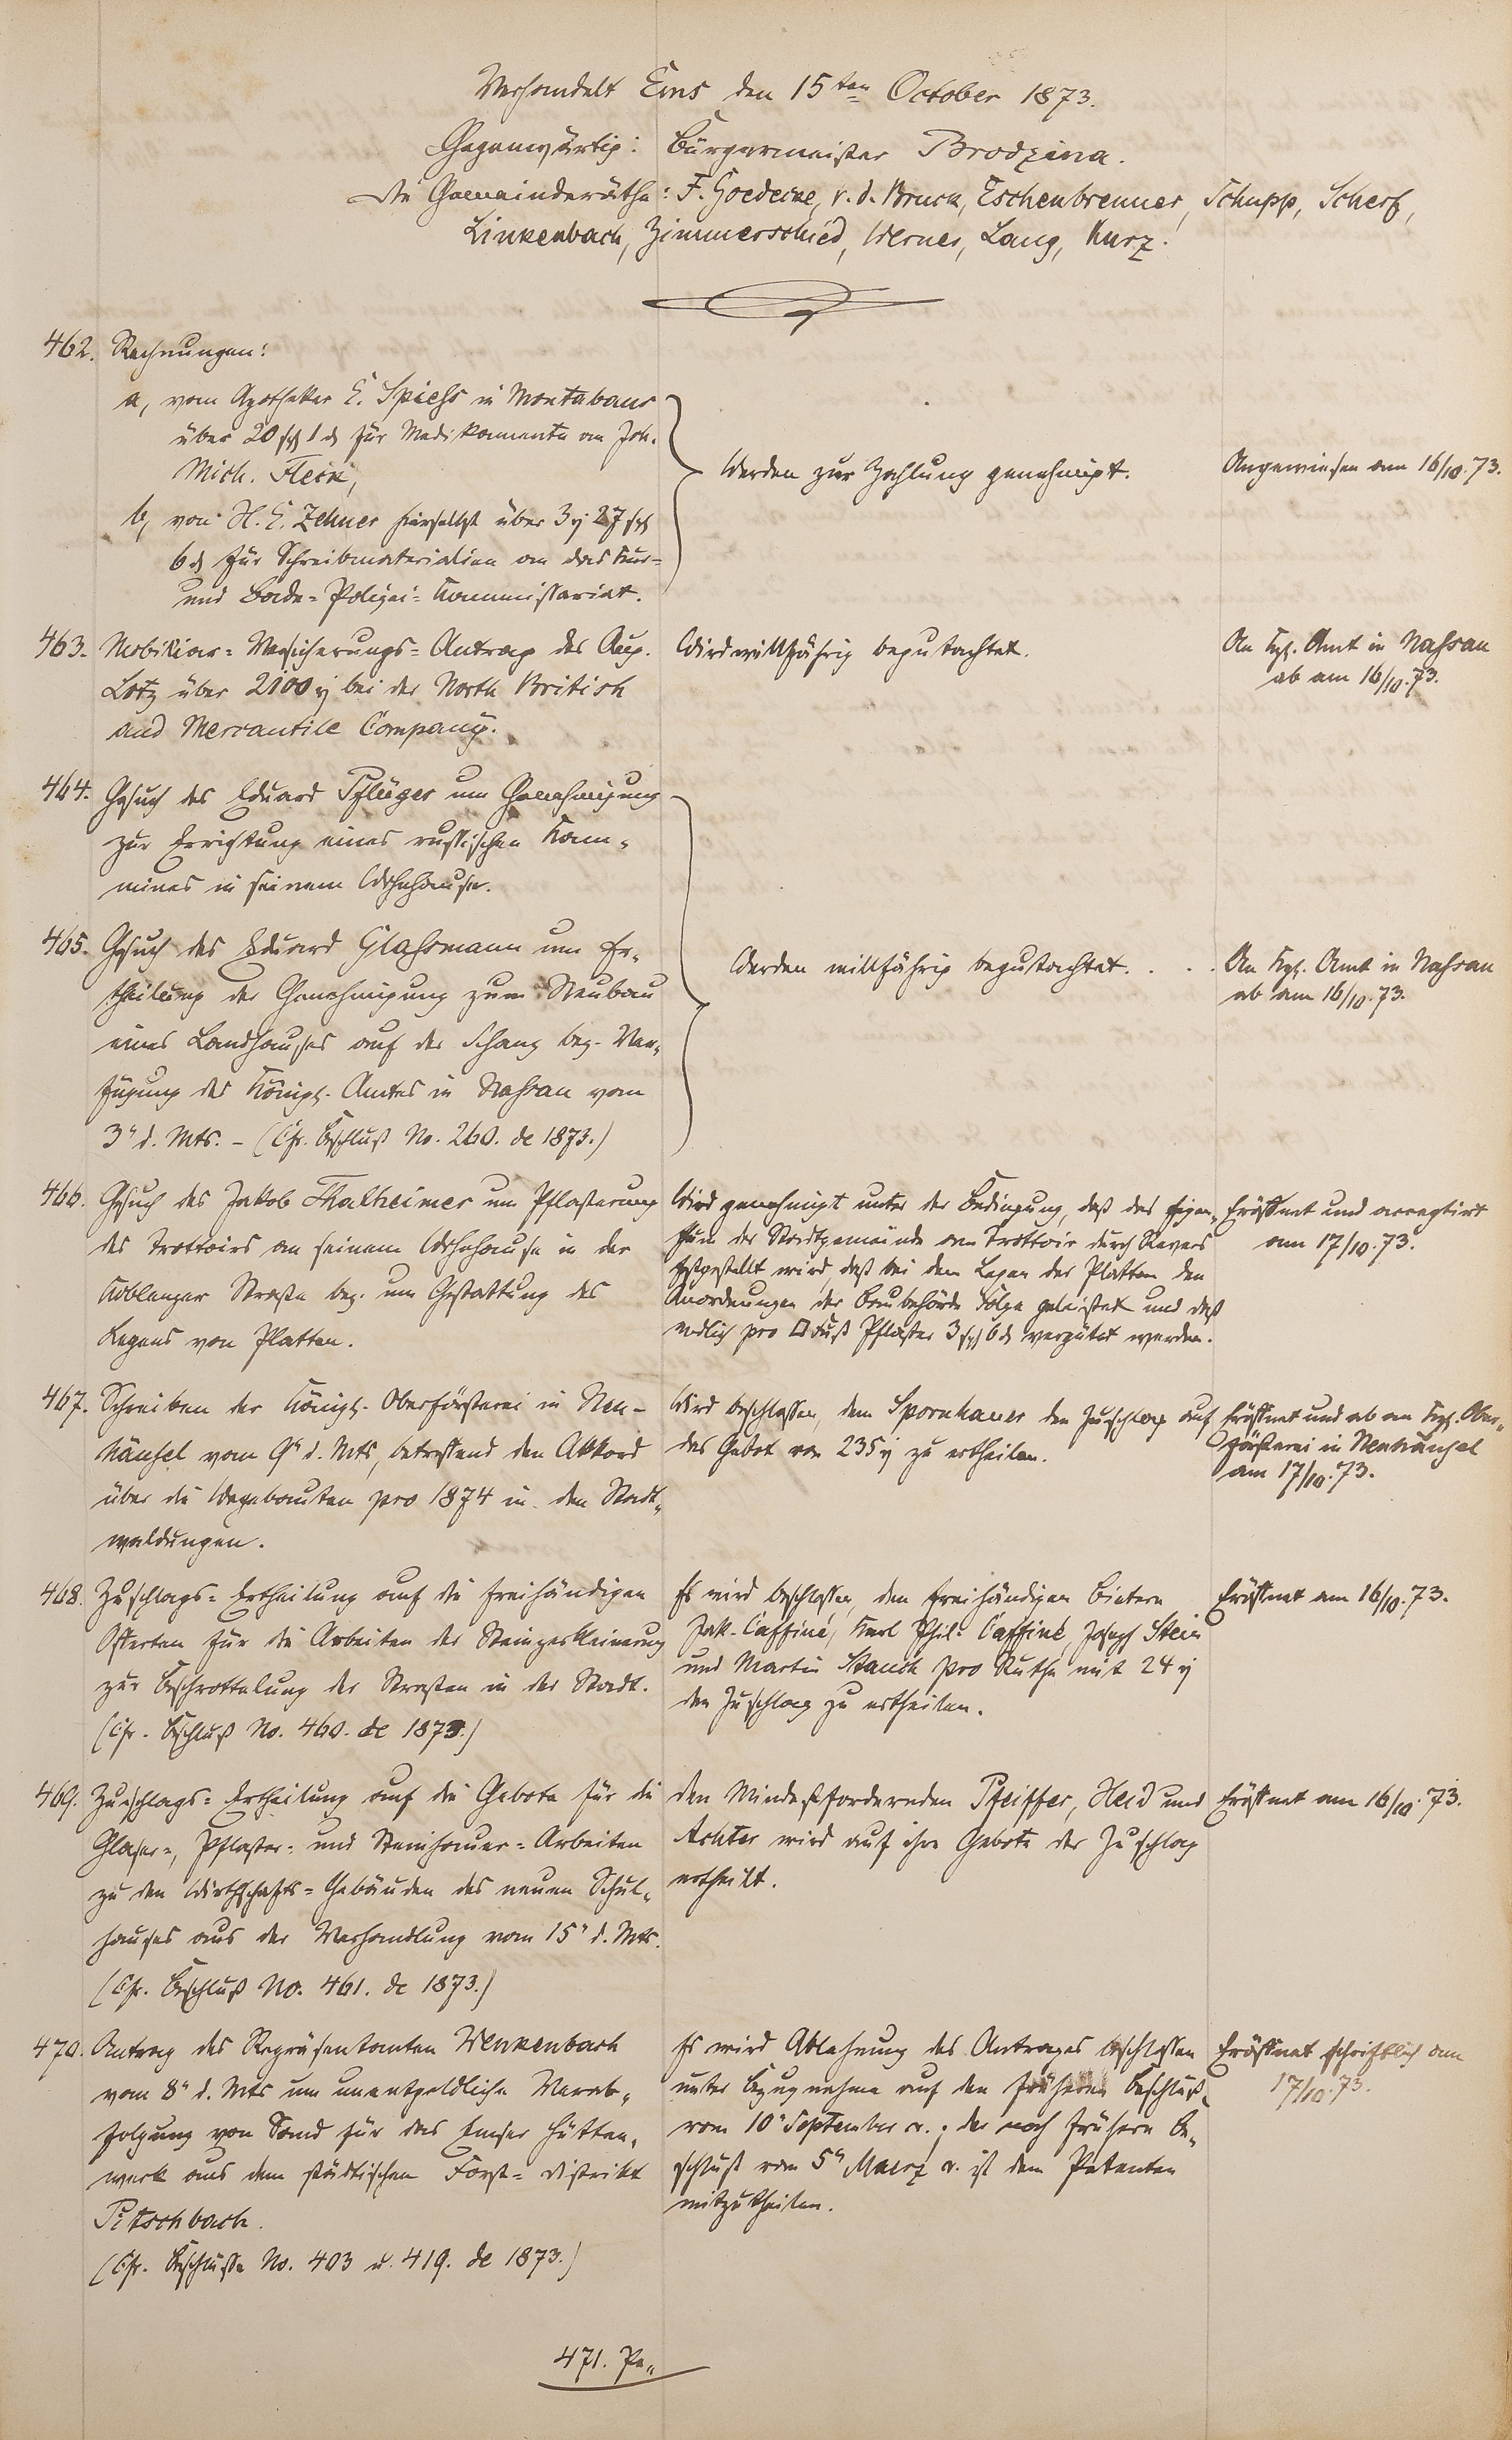 Verhandelt Ems den 15ten October 1873.
Gegenwärtig: Bürgermeister Brodzina.
die Gemeinderäthe: F. Goedecke, v. d. Bruck, Eschenbrenner, Schupp, Scherf,
Linkenbach, Zimmerschied, Werner, Lang, Kurz.
462. Rechnungen:
a, vom Apotheker E. Spiehs in Montabaur
über 20 sg 1 d für Medikamente an Joh.
Mich. Fleck,
b, von H. E. Zehner hierselbst über 3 rj 27 sg
6 d für Schreibmaterialien an das Kur=
und Bade=Polizei=Kommissariat.
Werden zur Zahlung genehmigt.
Angewiesen am 16/10. 73.
463. Mobiliar=Versicherungs=Antrag des Aug.
Lotz über 2100 rj bei der North British
and Mercantile Company.
Wird willfährig begutachtet.
An Kgl. Amt in Nassau
ab am 16/10. 73.
464. Gesuch des Eduard Pflüger um Genehmigung
zur Errichtung eines russischen Kam=
mines in seinem Wohnhause.
465. Gesuch des Eduard Glahsmann um Er=
theilung der Genehmigung zum Neubau
eines Landhauses auf der Schanz bez. Ver=
fügung des Königl. Amtes in Nassau vom
3" d. Mts. – (Cfr. Beschluß No. 260. de 1873.)
Werden willfährig begutachtet. . . .
An Kgl. Amt in Nassau
ab am 16/10. 73.
466. Gesuch des Jakob Thalheimer um Pflasterung
des Trottoirs an seinem Wohnhause in der
Koblenzer Straße bez. um Gestattung des
Legens von Platten.
Wird genehmigt unter der Bedingung, daß das Eigen=
thum der Stadtgemeinde am Trottoir durch Revers
festgestellt wird, daß bei dem Legen der Platten den
Anordnungen der Baubehörde Folge geleistet und daß
endlich pro □ Fuß Pflaster 3 sg 6 d vergütet werden.
Eröffnet und acceptirt
am 17/10. 73.
467. Schreiben der Königl. Oberförsterei in Neu=
häusel vom 9" d. Mts, betreffend den Akkord
über die Wegebauten pro 1874 in den Stadt=
waldungen.
Wird beschlossen, dem Spornhauer den Zuschlag auf
das Gebot von 235 rj zu ertheilen.
Eröffnet und ab an Kgl. Ober=
försterei in Neuhäusel
am 17/10. 73.
468. Zuschlags=Ertheilung auf die freihändigen
Offerten für die Arbeiten der Steinzerkleinerung
zur Beschrottelung der Straßen in der Stadt.
(Cfr. Beschluß No. 460. de 1873.)
Es wird beschlossen, den freihändigen Bietern
Jak. Caffiné, Karl Phil. Caffiné, Joseph Stein
und Martin Stauch pro Ruthe mit 24 rj
den Zuschlag zu ertheilen.
Eröffnet am 16/10. 73.
469. Zuschlags=Ertheilung auf die Gebote für die
Glaser=, Pflaster= und Steinhauer=Arbeiten
zu den Wirthschafts=Gebäuden des neuen Schul=
hauses aus der Verhandlung vom 15" d. Mts.
(Cfr. Beschluß No. 461. de 1873.)
Den Mindestfordernden Pfeiffer, Heid und
Achter wird auf ihre Gebote der Zuschlag
ertheilt.
Eröffnet am 16/10. 73.
470. Antrag des Repräsentanten Wenkenbach
vom 8" d. Mts um unentgeldliche Verab=
folgung von Sand für das Emser Hütten=
werk aus dem städtischen Forst=distrikt
Pitschbach.
(Cfr. Beschlüsse No. 403 u. 419. de 1873.)
Es wird Ablehnung des Antrages beschlossen
unter Bezugnahme auf den früheren Beschluß
vom 10" September cr.; der noch frühere Be=
schluß vom 5" Maerz cr. ist dem Petenten
mitzutheilen.
Eröffnet schriftlich am
17/10. 73.
471. Pe=